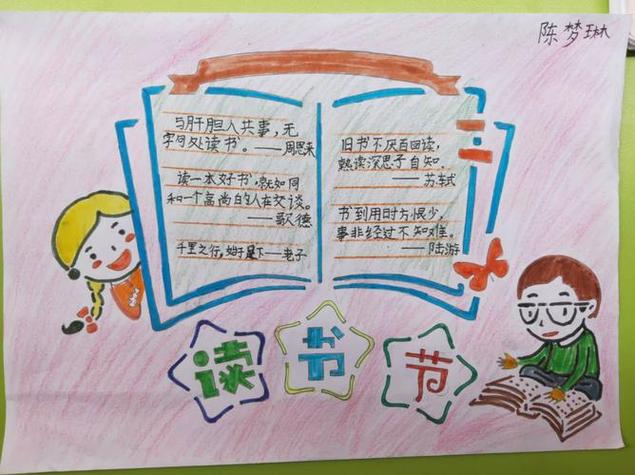 陈梦琳
与肝胆人共事，无
字句处读书。——周恩来
读一本好书，就如同
和一个高尚的人在交谈。
——歌德
千里之行，始于足下——老子
旧书不厌百回读，
熟读深思子自知
——苏轼
书到用时方恨少，
事非经过不知难。
——陆游
读书节